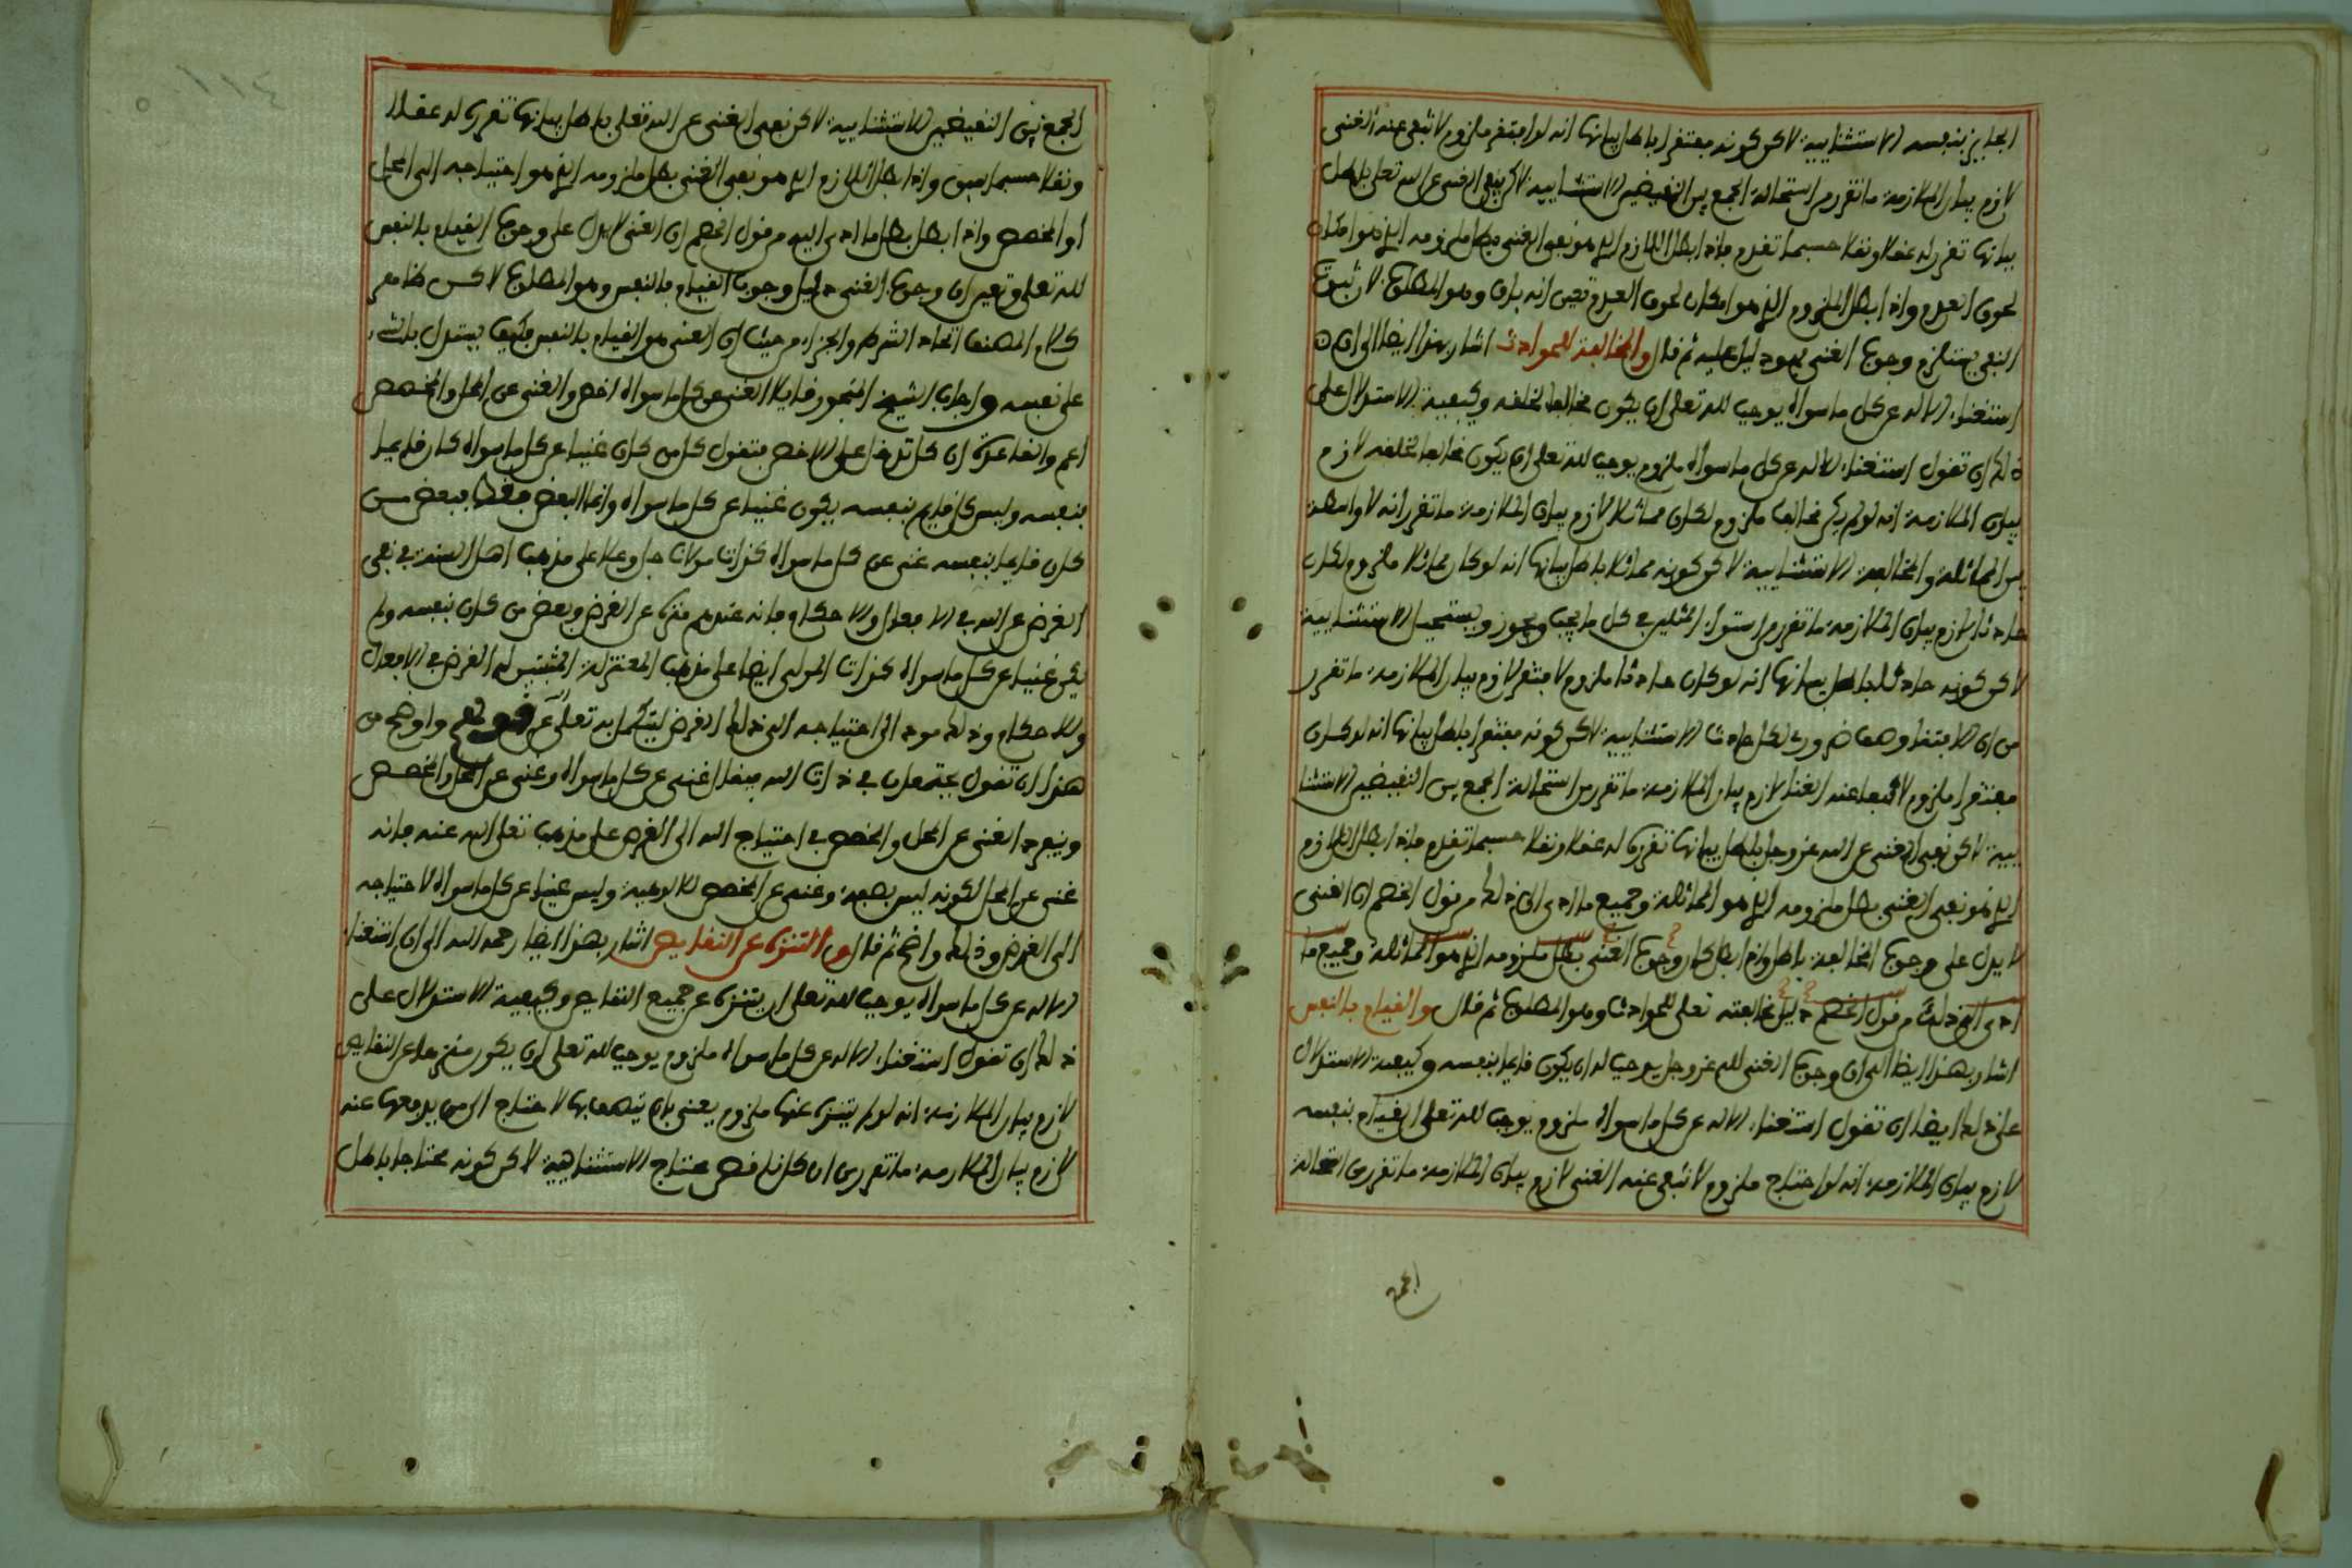 الجايز بنفسه الاستثنايية لاكن كونه مفتقرا باطل بيانها انه لو افتقر ملزوم لانتفى عنه الغنى
لازم بيان الملازمة ما تقرر من استحالة الجمع بين النقيضين الاستثنايية لاكن نفي الغنى عن الله تعلى باطل
بيانها تقرره له عقلا ونقلا حسبما تقدم فاذا بطل اللازم الذي هو نفي الغنى بطل ملزومه الذي هو امكان
لحوق العدم واذا بطل الملزوم الذي هو امكان لحوق العدم تعين انه باق وهو المطلوب لان ثبوت
النفي يستلزم وجوب الغنى فهو دليل عليه ثم قال والمخالفة للحوادث اشار بهذا ايضا الى ان
استغناء الاله عن كل ما سواه يوجب لله تعلى ان يكون مخالفا لخلقه وكيفية الاستدلال على
ذلك ان تقول استغناء الاله عن كل ما سواه ملزوم يوجب لله تعلى ان يكون مخالفا لخلقه لازم
بيان الملازمة انه لو لم يكن مخالفا ملزوم لكان مماثلا لازم بيان الملازمة ما تقرر انه لا واسطة
بين المماثلة والمخالفة الاستثنايية لاكن كونه مماثلا باطل بيانها انه لو كان مماثلا ملزوم لكان
حادثا لازم بيان الملازمة ما تقرر من استواء المثلين في كل ما يجب ويجوز ويستحيل الاستثنايية
لاكن كونه حادثا باطل بيانها انه لو كان حادثا ملزوم لافتقر لازم بيان الملازمة ما تقرر
من ان الافتقار وصف ضروري لكل حادث الاستثنايية لاكن كونه مفتقرا باطل بيانها انه لو كان
مفتقرا ملزوم لانتفا عنه الغنا لازم بيان الملازمة ما تقرر من استحالة الجمع بين النقيضين الاستثنا
يية لاكن نفي الغنى عن الله عز وجل باطل بيانها تقرره له عقلا ونقلا حسبما تقدم فاذا بطل اللازم
الذي هو نفي الغنى بطل ملزومه الذي هو المماثلة وجميع ما ادى الى ذلك من قول الخصم ان الغنى
لا يدل على وجوب المخالفة باطل واذا بطل كان وجوب الغنى بطل ملزومه الذي هو المماثلة وجميع ما
ادى الى ذلك من قول الخصم دليل مخالفته تعلى للحوادث وهو المطلوب ثم قال والقيام بالنفس
اشار بهذا ايضا الى ان وجوب الغنى لله عز وجل يوجب له ان يكون قايما بنفسه وكيفية الاستدلال
على ذلك ايضا ان تقول استغناء الاله عن كل ما سواه ملزوم يوجب لله تعلى القيام بنفسه
لازم بيان الملازمة انه لو احتاج ملزوم لانتفى عنه الغنى لازم بيان الملازمة ما تقرر من استحالة
الجمع
الجمع بين النقيضين الاستثنايية لاكن نفي الغنى عن الله تعلى باطل بيانها تقرره له عقلا
ونقلا حسبما سبق واذا بطل اللازم الذي هو نفي الغنى بطل ملزومه الذي هو احتياجه الى المحل
او المخصص واذا بطل بطل ما ادى اليه من قول الخصم ان الغنى لا يدل على وجوب القيام بالنفس
لله تعلى وتعين ان وجوب الغنى دليل وجوب القيام بالنفس وهو المطلوب لاكن ظاهر
كلام المصنف اتحاد الشرط والجزاء من حيث ان الغنى هو القيام بالنفس فكيف يستدل بالشيء
على نفسه واجاب الشيخ المنجور قايلا الغنى عن كل ما سواه اخص والغنى عن المحل والمخصص
اعم والقاعدة ان كل تدخل على الاخص فتقول كل من كان غنيا عن كل ما سواه كان قايما
بنفسه وليس كل قايم بنفسه يكون غنيا عن كل ما سواه وانما البعض فقط فبعض من
كان قايما بنفسه غنى عن كل ما سواه كذات مولانا جل وعلا على مذهب اهل السنة في نفي
الغرض عن الله في الافعال والاحكام فانه عندهم منزه عن الغرض وبعض من كان بنفسه ولم
يكن غنيا عن كل ما سواه كذات المولى ايضا على مذهب المعتزلة المثبتين له الغرض في الافعال
والاحكام وذلك مود الى احتياجه الى ذلك الغرض ليتكمل به تعلى عن قولهم واوضح من
هذا ان تقول يجتمعان في ذات الله فيقال غنى عن كل ما سواه وغنى عن المحل والمخصص
وينفرد الغنى عن المحل والمخصص في احتياج الله الى الغرض على مذهب تعلى الله عنه فانه
غنى عن المحل لكونه ليس بصفة وغنى عن المخصص للالوهية وليس غنيا عن كل ما سواه لاحتياجه
الى الغرض وذلك واضح ثم قال والتنزه عن النقايص اشار بهذا ايضا رحمه الله الى ان استغناء
الاله عن كل ما سواه يوجب لله تعلى ان يتنزه عن جميع النقايص وكيفية الاستدلال على
ذلك ان تقول استغناء الاله عن كل ما سواه ملزوم يوجب لله تعلى ان يكون منزها عن النقايص
لازم بيان الملازمة انه لو لم يتنزه عنها ملزوم يعنى بان يتصف بها لاحتاج الى من يدفعها عنه
لازم بيان الملازمة ما تقرر من ان كل ناقص محتاج الاستثناهية لاكن كونه محتاجا باطل